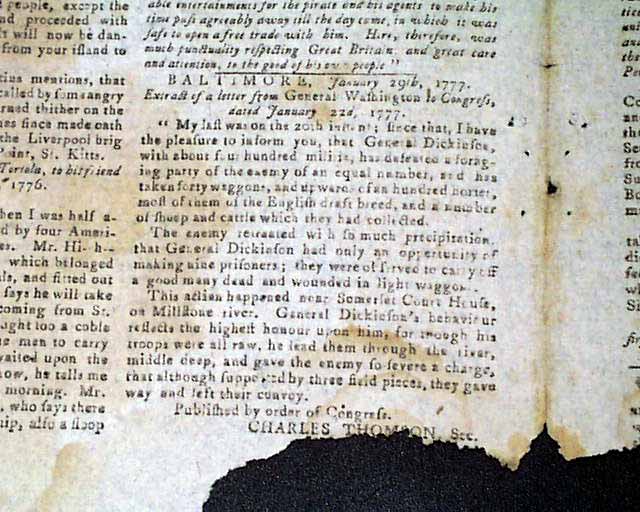 people, except the
nd proceeded with
s will now be dan-
from your island to
tius mentions, that
called by some angry
rned thither on the
nes since made oath
the Liverpool brig
Point, St. Kitts.
Tortola, to his friend
1776.
hen I was half a-
d by four Ameri-
es. Mr.
which belonged
ls, and fitted out
says he will take
coming from St.
ught too a coble
e men to carry
waited upon the
now, he tells me
morning. Mr.
, who says there
hip, also a sloop
able entertainments for the pirate and his agents to make his
time pass agreeably away till the day come, in which it was
safe to open a free trade with him. Here, therefore, was
much punctuality respecting Great Britain and great care
and attention, to the good of his own people"
BALTIMORE, January 29th, 1777.
Extract of a letter from General Washington to Congress,
dated January 22d, 1777.
" My last was on the 20th instant; since that, I have
the pleasure to inform you, that General Dickinson,
with about four hundred militia, has defeated a forag-
ing party of the enemy of an equal number, and has
taken forty waggons, and upwards of an hundred horses,
most of them of the English draft breed, and a number
of sheep and cattle which they had collected.
The enemy retreated with so much precipitation,
that General Dickinson had only an opportunity of
making nine prisoners; they were observed to carry off
a good many dead and wounded in light waggons.
This action happened near Somerset Court House,
on Millstone river. General Dickinson's behaviour
reflects the highest honour upon him, for though his
troops were all raw, he lead them through the river,
middle deep, and gave the enemy so severe a charge,
that although supported by three field pieces, they gave
way and left their convoy.
Published by order of Congress.
CHARLES THOMSON, Sec.